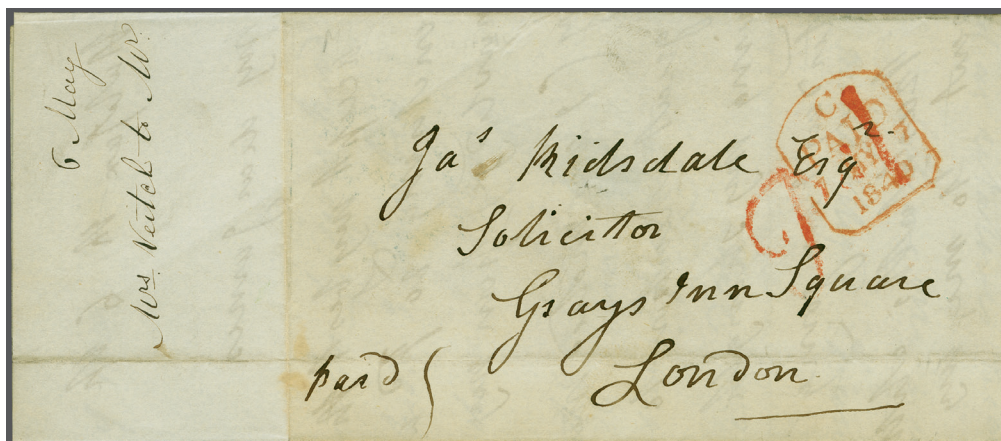 6 May
Mrs Veitch to Mr
Jas Ridsdale Esqr.
Solicitor
Grays Inn Square
London
paid
C
PAID
7 MY 7
1840
P1